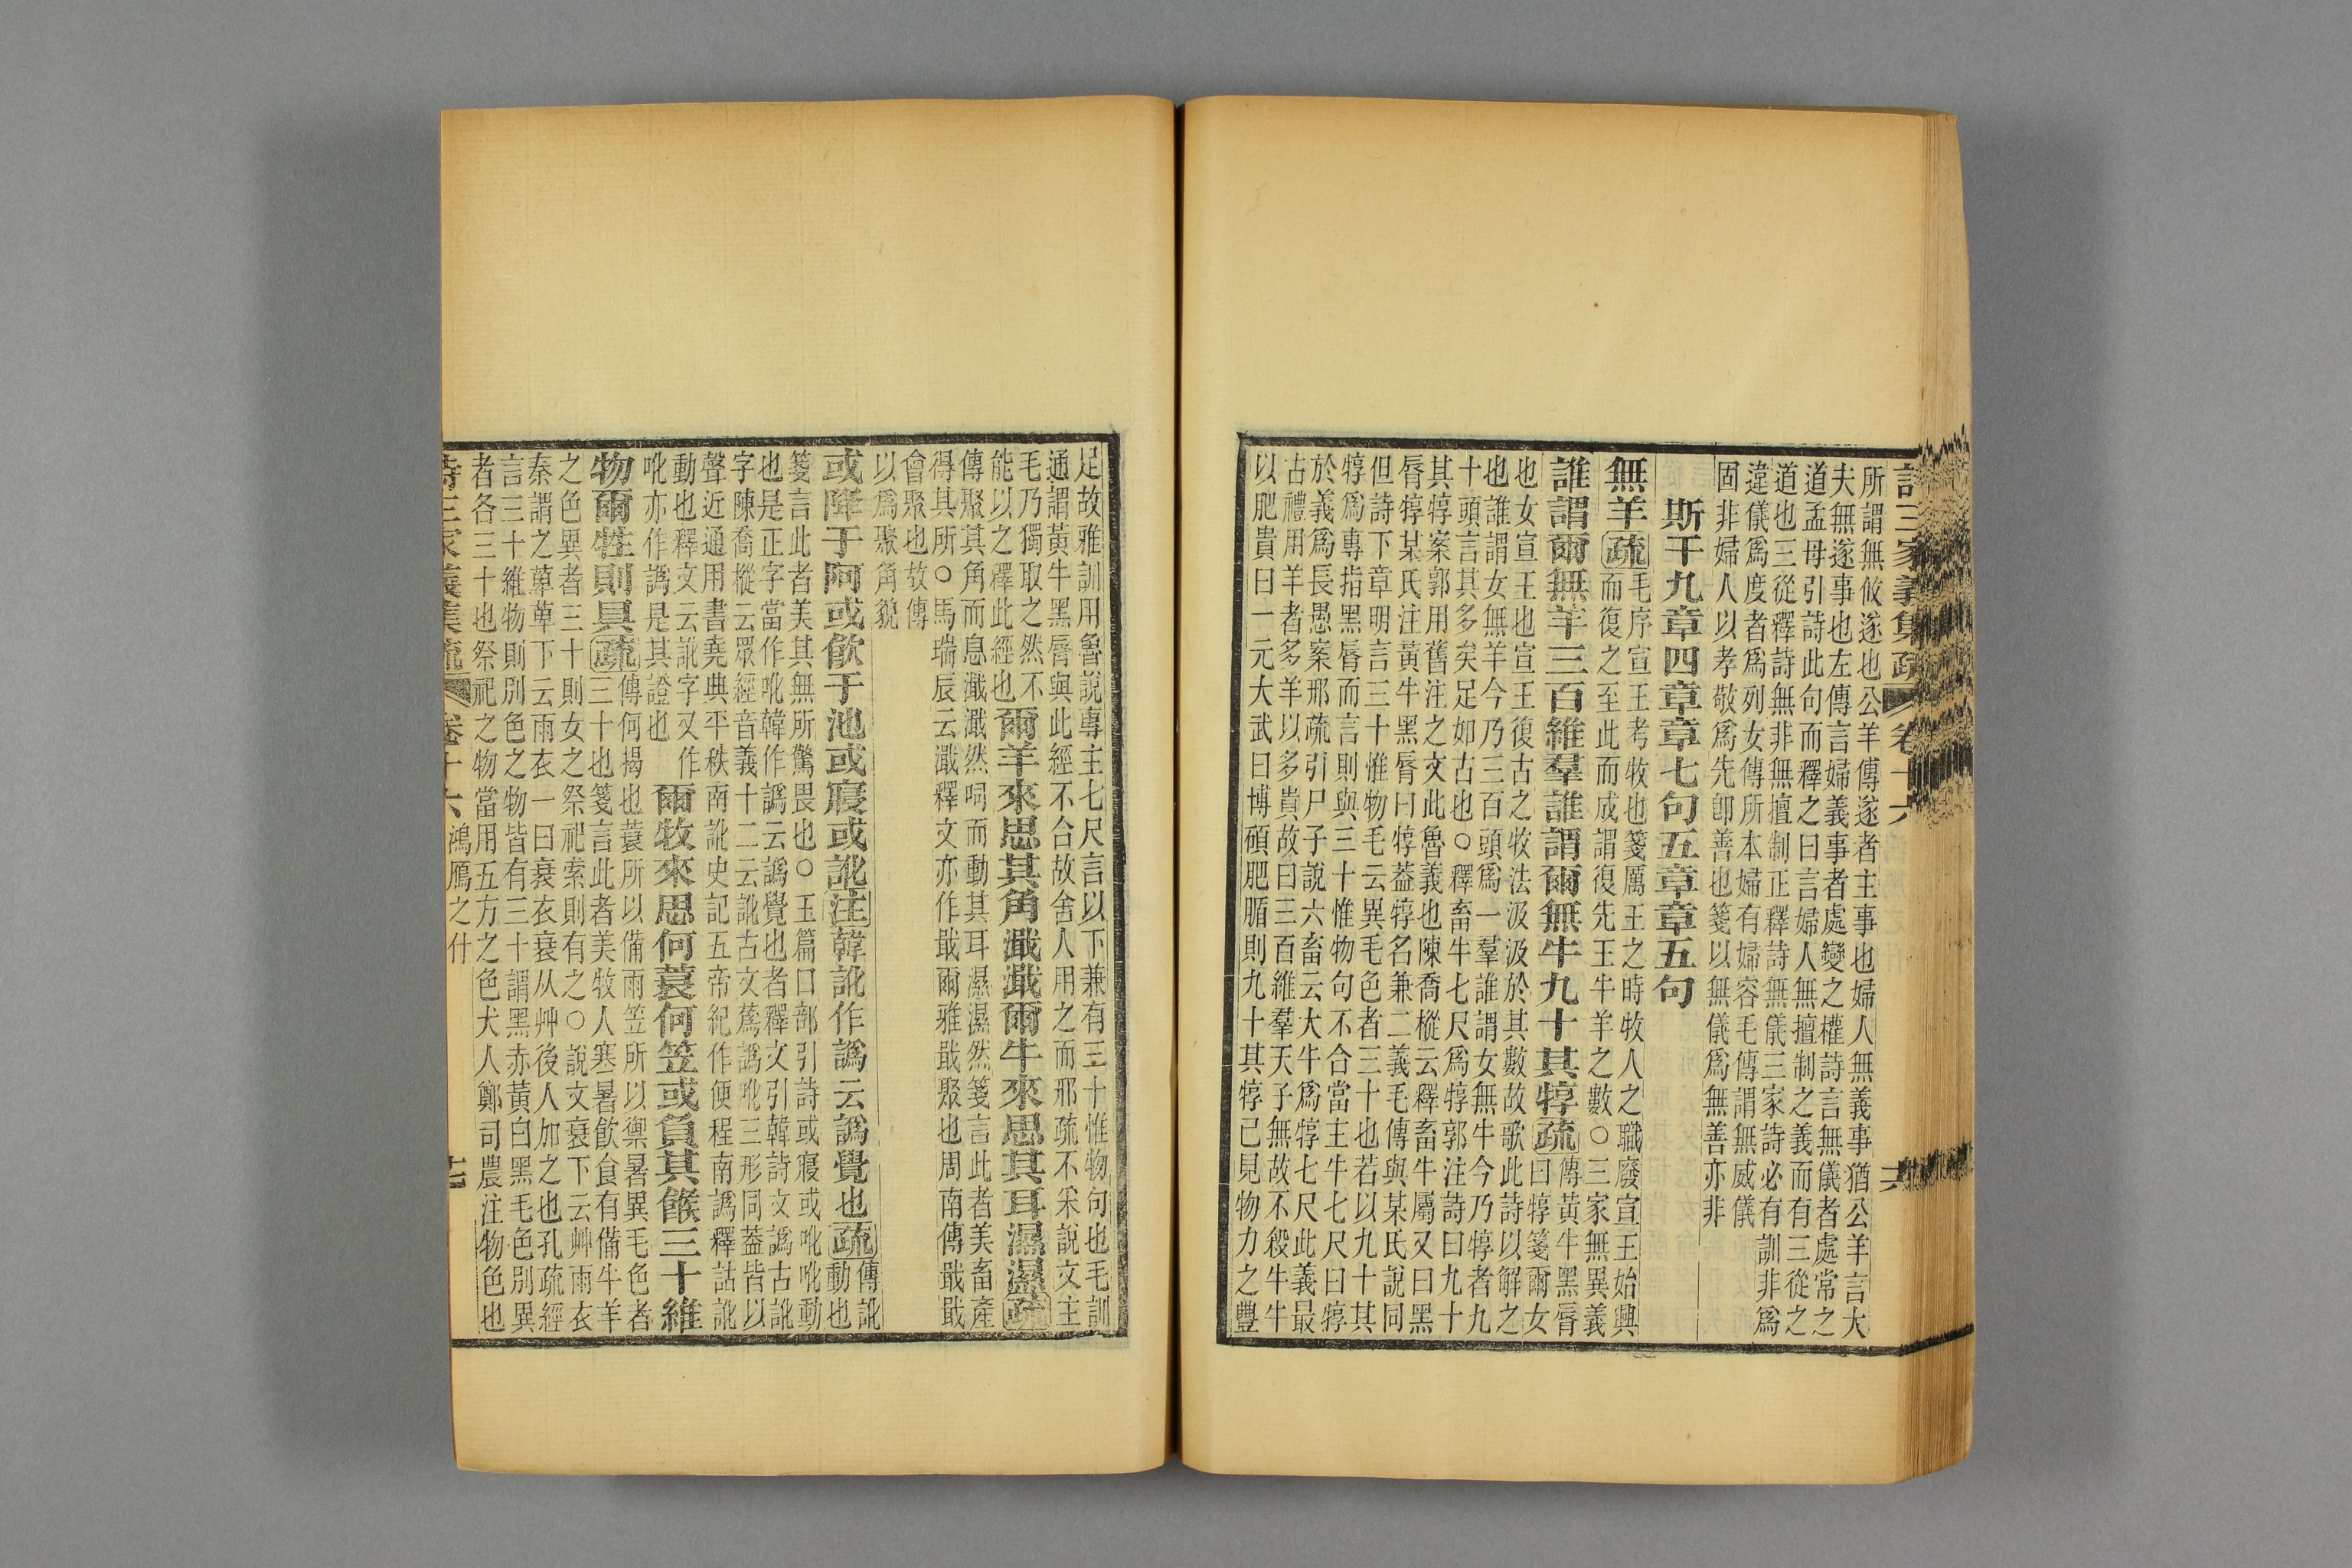 詩三家義集疏 卷十六
所謂無攸遂也公羊傳遂者主事也婦人無義事猶公羊言大
夫無遂事也左傳言婦義事者處變之權詩言無儀者處常之
道孟母引詩此句而釋之曰言婦人無擅制之義而有三從之
道也三從釋詩無非無擅制正釋詩無儀三家詩必有訓非爲
違儀爲度者爲列女傳所本婦有婦容毛傳謂無威儀
固非婦人以孝敬爲先卽善也箋以無儀爲無善亦非
斯干九章四章章七句五章章五句
無羊疏
毛序宣王考牧也箋厲王之時牧人之職廢宣王始興
而復之至此而成謂復先王牛羊之數○三家無異義
誰謂爾無羊三百維羣誰謂爾無牛九十其犉疏
傳黃牛黑脣
曰犉箋爾女
也女宣王也宣王復古之牧法汲汲於其數故歌此詩以解之
也誰謂女無羊今乃三百頭爲一羣誰謂女無牛今乃犉者九
十頭言其多矣足如古也○釋畜牛七尺爲犉郭注詩曰九十
其犉案郭用舊注之文此魯義也陳喬樅云釋畜牛屬又曰黑
脣犉某氏注黃牛黑脣曰犉葢犉名兼二義毛傳與某氏說同
但詩下章明言三十惟物毛云異毛色者三十也若以九十其
犉爲專指黑脣而言則與三十惟物句不合當主牛七尺曰犉
於義爲長愚案邢疏引尸子說六畜云大牛爲犉七尺此義最
古禮用羊者多羊以多貴故曰三百維羣天子無故不殺牛牛
以肥貴曰一元大武曰博碩肥腯則九十其犉已見物力之豐
足故雅訓用魯說專主七尺言以下兼有三十惟物句也毛訓
通謂黃牛黑脣與此經不合故舍人用之而邢疏不采說文主
毛乃獨取之然不
能以之釋此經也
爾羊來思其角濈濈爾牛來思其耳濕濕疏
傳聚其角而息濈濈然呞而動其耳濕濕然箋言此者美畜產
得其所○馬瑞辰云濈釋文亦作戢爾雅戢聚也周南傳戢戢
會聚也故傳
以爲聚角貌
或降于阿或飮于池或寢或訛注韓訛作譌云譌覺也疏
傳訛
動也
箋言此者美其無所驚畏也○玉篇口部引詩或寢或吪吪動
也是正字當作吪韓作譌云譌覺也者釋文引韓詩文譌古訛
字陳喬樅云眾經音義十二云訛古文蔿譌吪三形同葢皆以
聲近通用書堯典平秩南訛史記五帝紀作便程南譌釋詁訛
動也釋文云訛字又作
吪亦作譌是其證也
爾牧來思何蓑何笠或負其餱三十維
物爾牲則具疏
傳何揭也蓑所以備雨笠所以禦暑異毛色者
三十也箋言此者美牧人寒暑飮食有備牛羊
之色異者三十則女之祭祀索則有之○說文衰下云艸雨衣
秦謂之萆萆下云雨衣一曰衰衣衰从艸後人加之也孔疏經
言三十維物則別色之物皆有三十謂黑赤黃白黑毛色別異
者各三十也祭祀之物當用五方之色犬人鄭司農注物色也
詩三家義集疏 卷十六 鴻鴈之什 十七